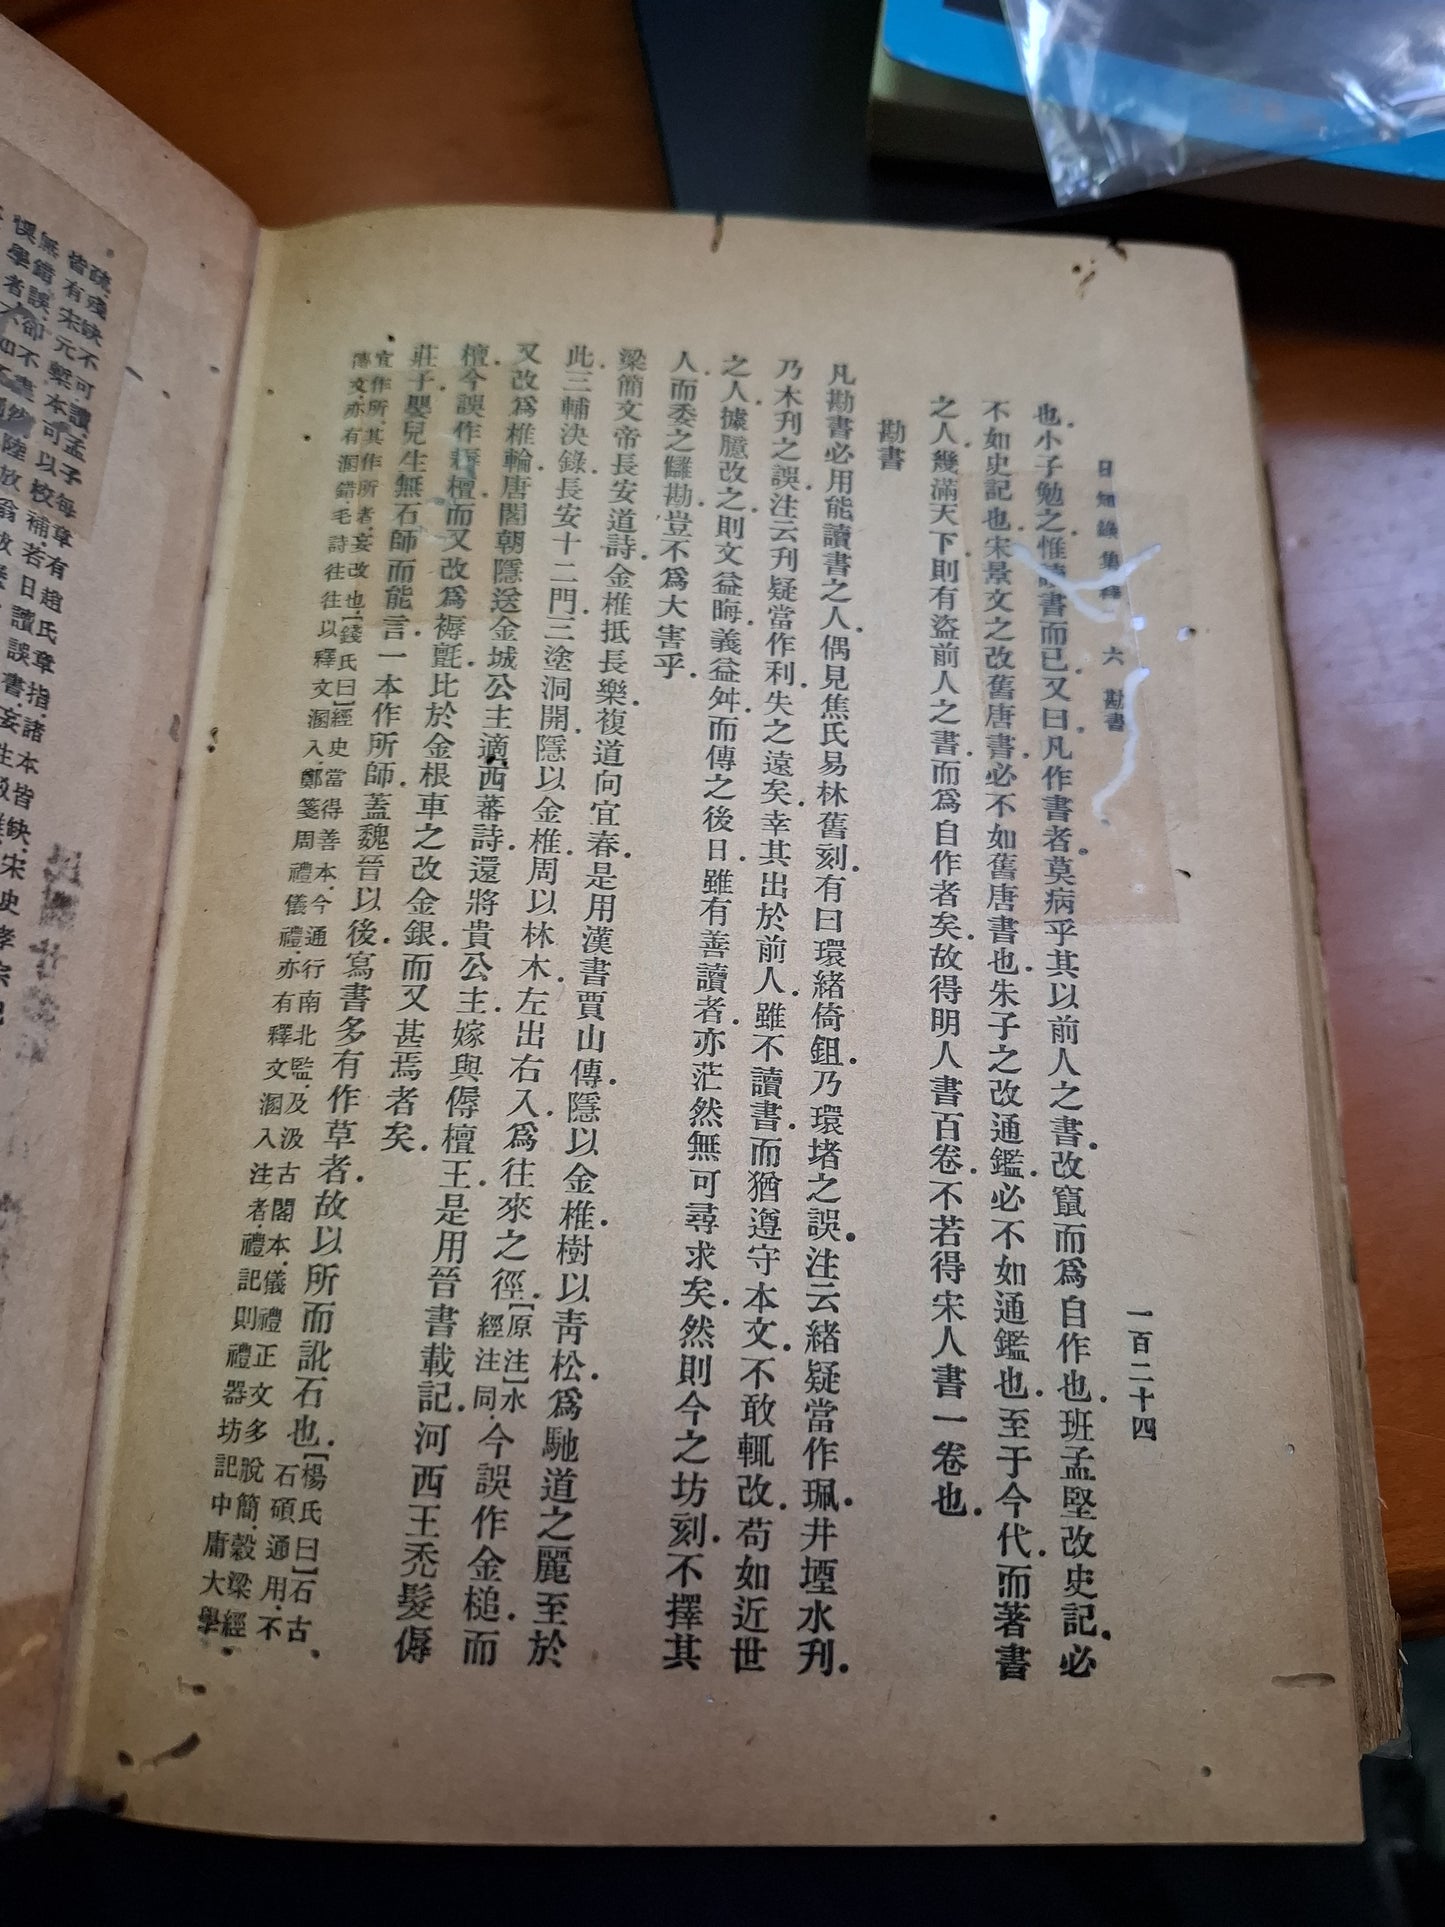 日知錄集釋 六 勘書 一百二十四
也.小子勉之.惟讀書而已.又曰.凡作書者.莫病乎其以前人之書.改竄而爲自作也.班孟堅改史記.必
不如史記也.宋景文之改舊唐書.必不如舊唐書也.朱子之改通鑑.必不如通鑑也.至于今代.而著書
之人.幾滿天下.則有盜前人之書.而爲自作者矣.故得明人書百卷.不若得宋人書一卷也.
勘書
凡勘書必用能讀書之人.偶見焦氏易林舊刻.有曰環緒倚鉏.乃環堵之誤.注云緒疑當作珮.井堙水刊.
乃木刊之誤.注云刊疑當作利.失之遠矣.幸其出於前人.雖不讀書.而猶遵守本文.不敢輒改.苟如近世
之人.據臆改之.則文益晦.義益舛.而傳之後日.雖有善讀者.亦茫然無可尋求矣.然則今之坊刻.不擇其
人.而委之讎勘.豈不爲大害乎.
梁簡文帝長安道詩.金椎抵長樂.複道向宜春.是用漢書賈山傳.隱以金椎.樹以靑松.爲馳道之麗至於
此.三輔決錄.長安十二門.三塗洞開.隱以金椎.周以林木.左出右入.爲往來之徑.【原注】水經注同.今誤作金槌.而
又改爲椎輪.唐閻朝隱送金城公主適西蕃詩.還將貴公主.嫁與傉檀王.是用晉書載記.河西王禿髮傉
檀.今誤作耨檀.而又改爲褥氈.比於金根車之改金銀.而又甚焉者矣.
莊子.嬰兒生無石師而能言.一本作所師.蓋魏晉以後.寫書多有作草者.故以所而訛石也.【楊氏曰】石古石碩通用.不
宜作所.其作所者.妄改也.【錢氏曰】經史當得善本.今通行南北監.及汲古閣本.儀禮正文多脫簡.穀梁經
傳文.亦有溷錯.毛詩往往以釋文溷入鄭箋.周禮儀禮.亦有釋文溷入注者.禮記則禮器坊記中庸大學
疏.殘缺不可讀.孟子每章有趙氏章指.諸本皆缺.宋史孝宗
皆有宋元槧本可以校補.若日讀誤書.妄生
無錯誤.卻不